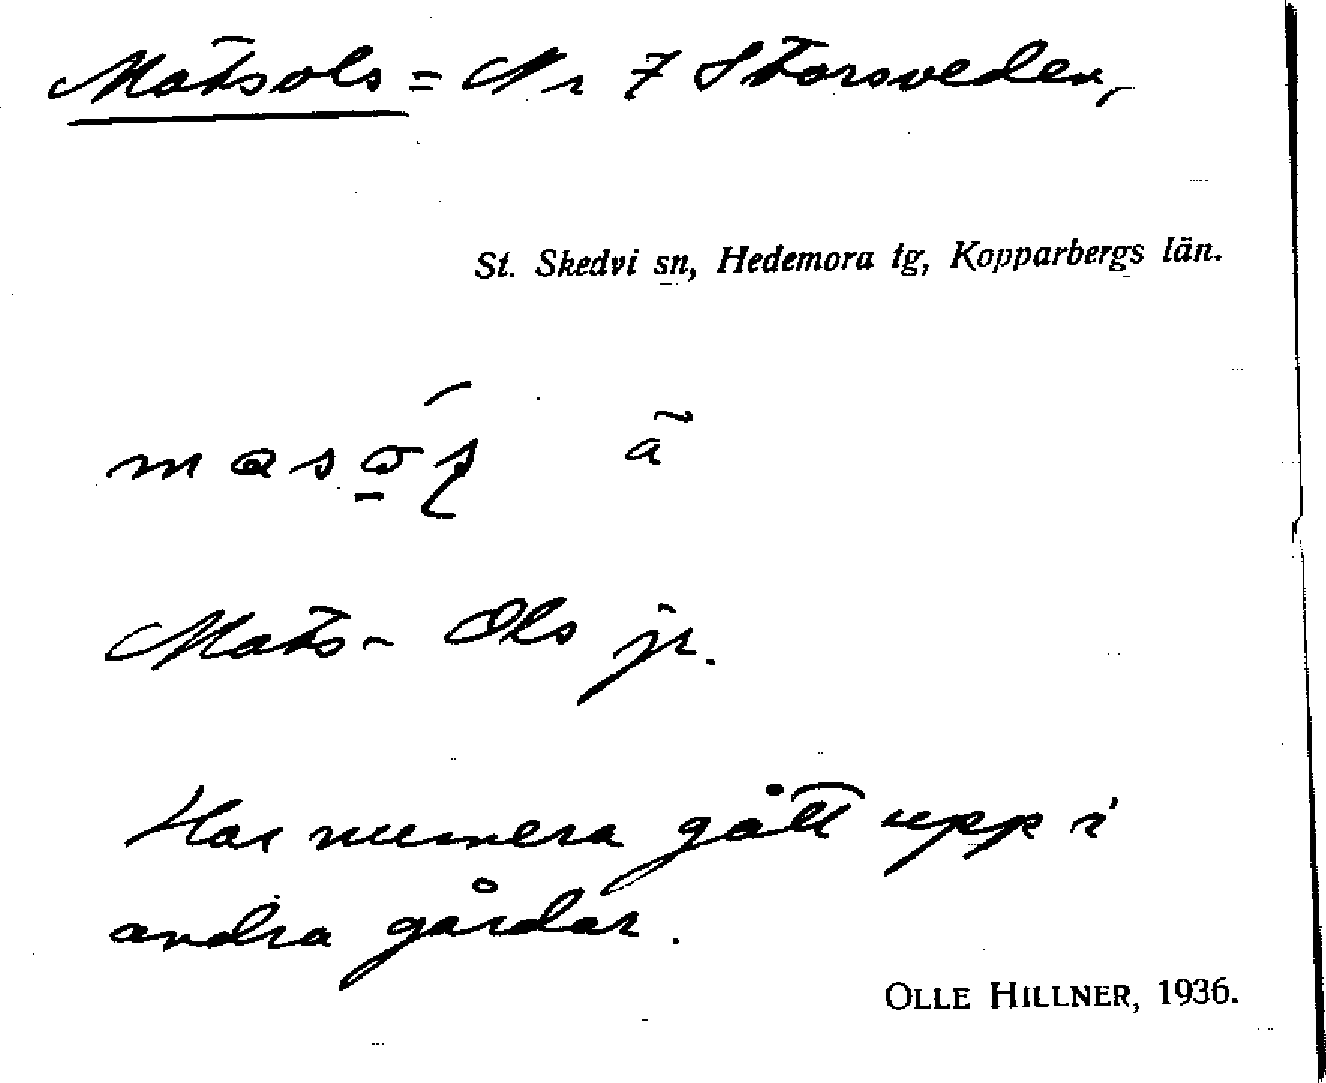 Matsols = Nr 7 Storsveden,
St. Skedvi sn, Hedemora tg, Kopparbergs län.
Mats- Ols jr.
Har numera gått upp i
andra gårdar.
OLLE HILLNER, 1936.